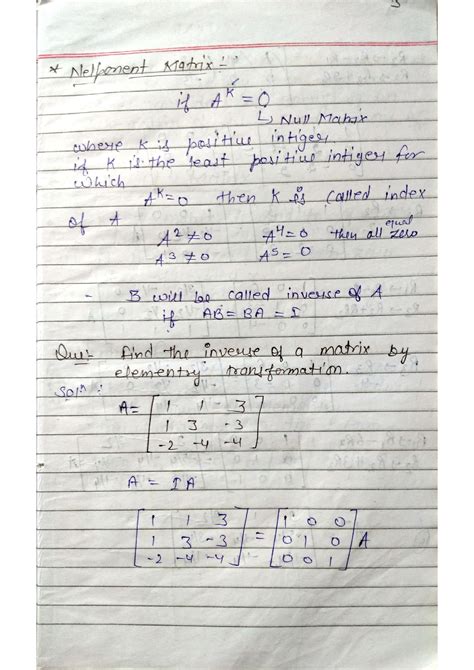 * Nelponent Matrix :-
if A^K = 0
↳ Null Matrix
where K is positive intiger
if K is the least positive intiger for
which
A^K = 0 then K is called index
of A
A² ≠ 0 A⁴ = 0 then all equal zero
A³ ≠ 0 A⁵ = 0
- B will be called inverse of A
if AB = BA = I
Que:- find the inverse of a matrix by
elementry transformation.
Soln:
A = [ 1 1 3
1 3 -3
-2 -4 -4 ]
A = IA
[ 1 1 3 ] = [ 1 0 0 ] A
[ 1 3 -3 ] [ 0 1 0 ]
[ -2 -4 -4 ] [ 0 0 1 ]